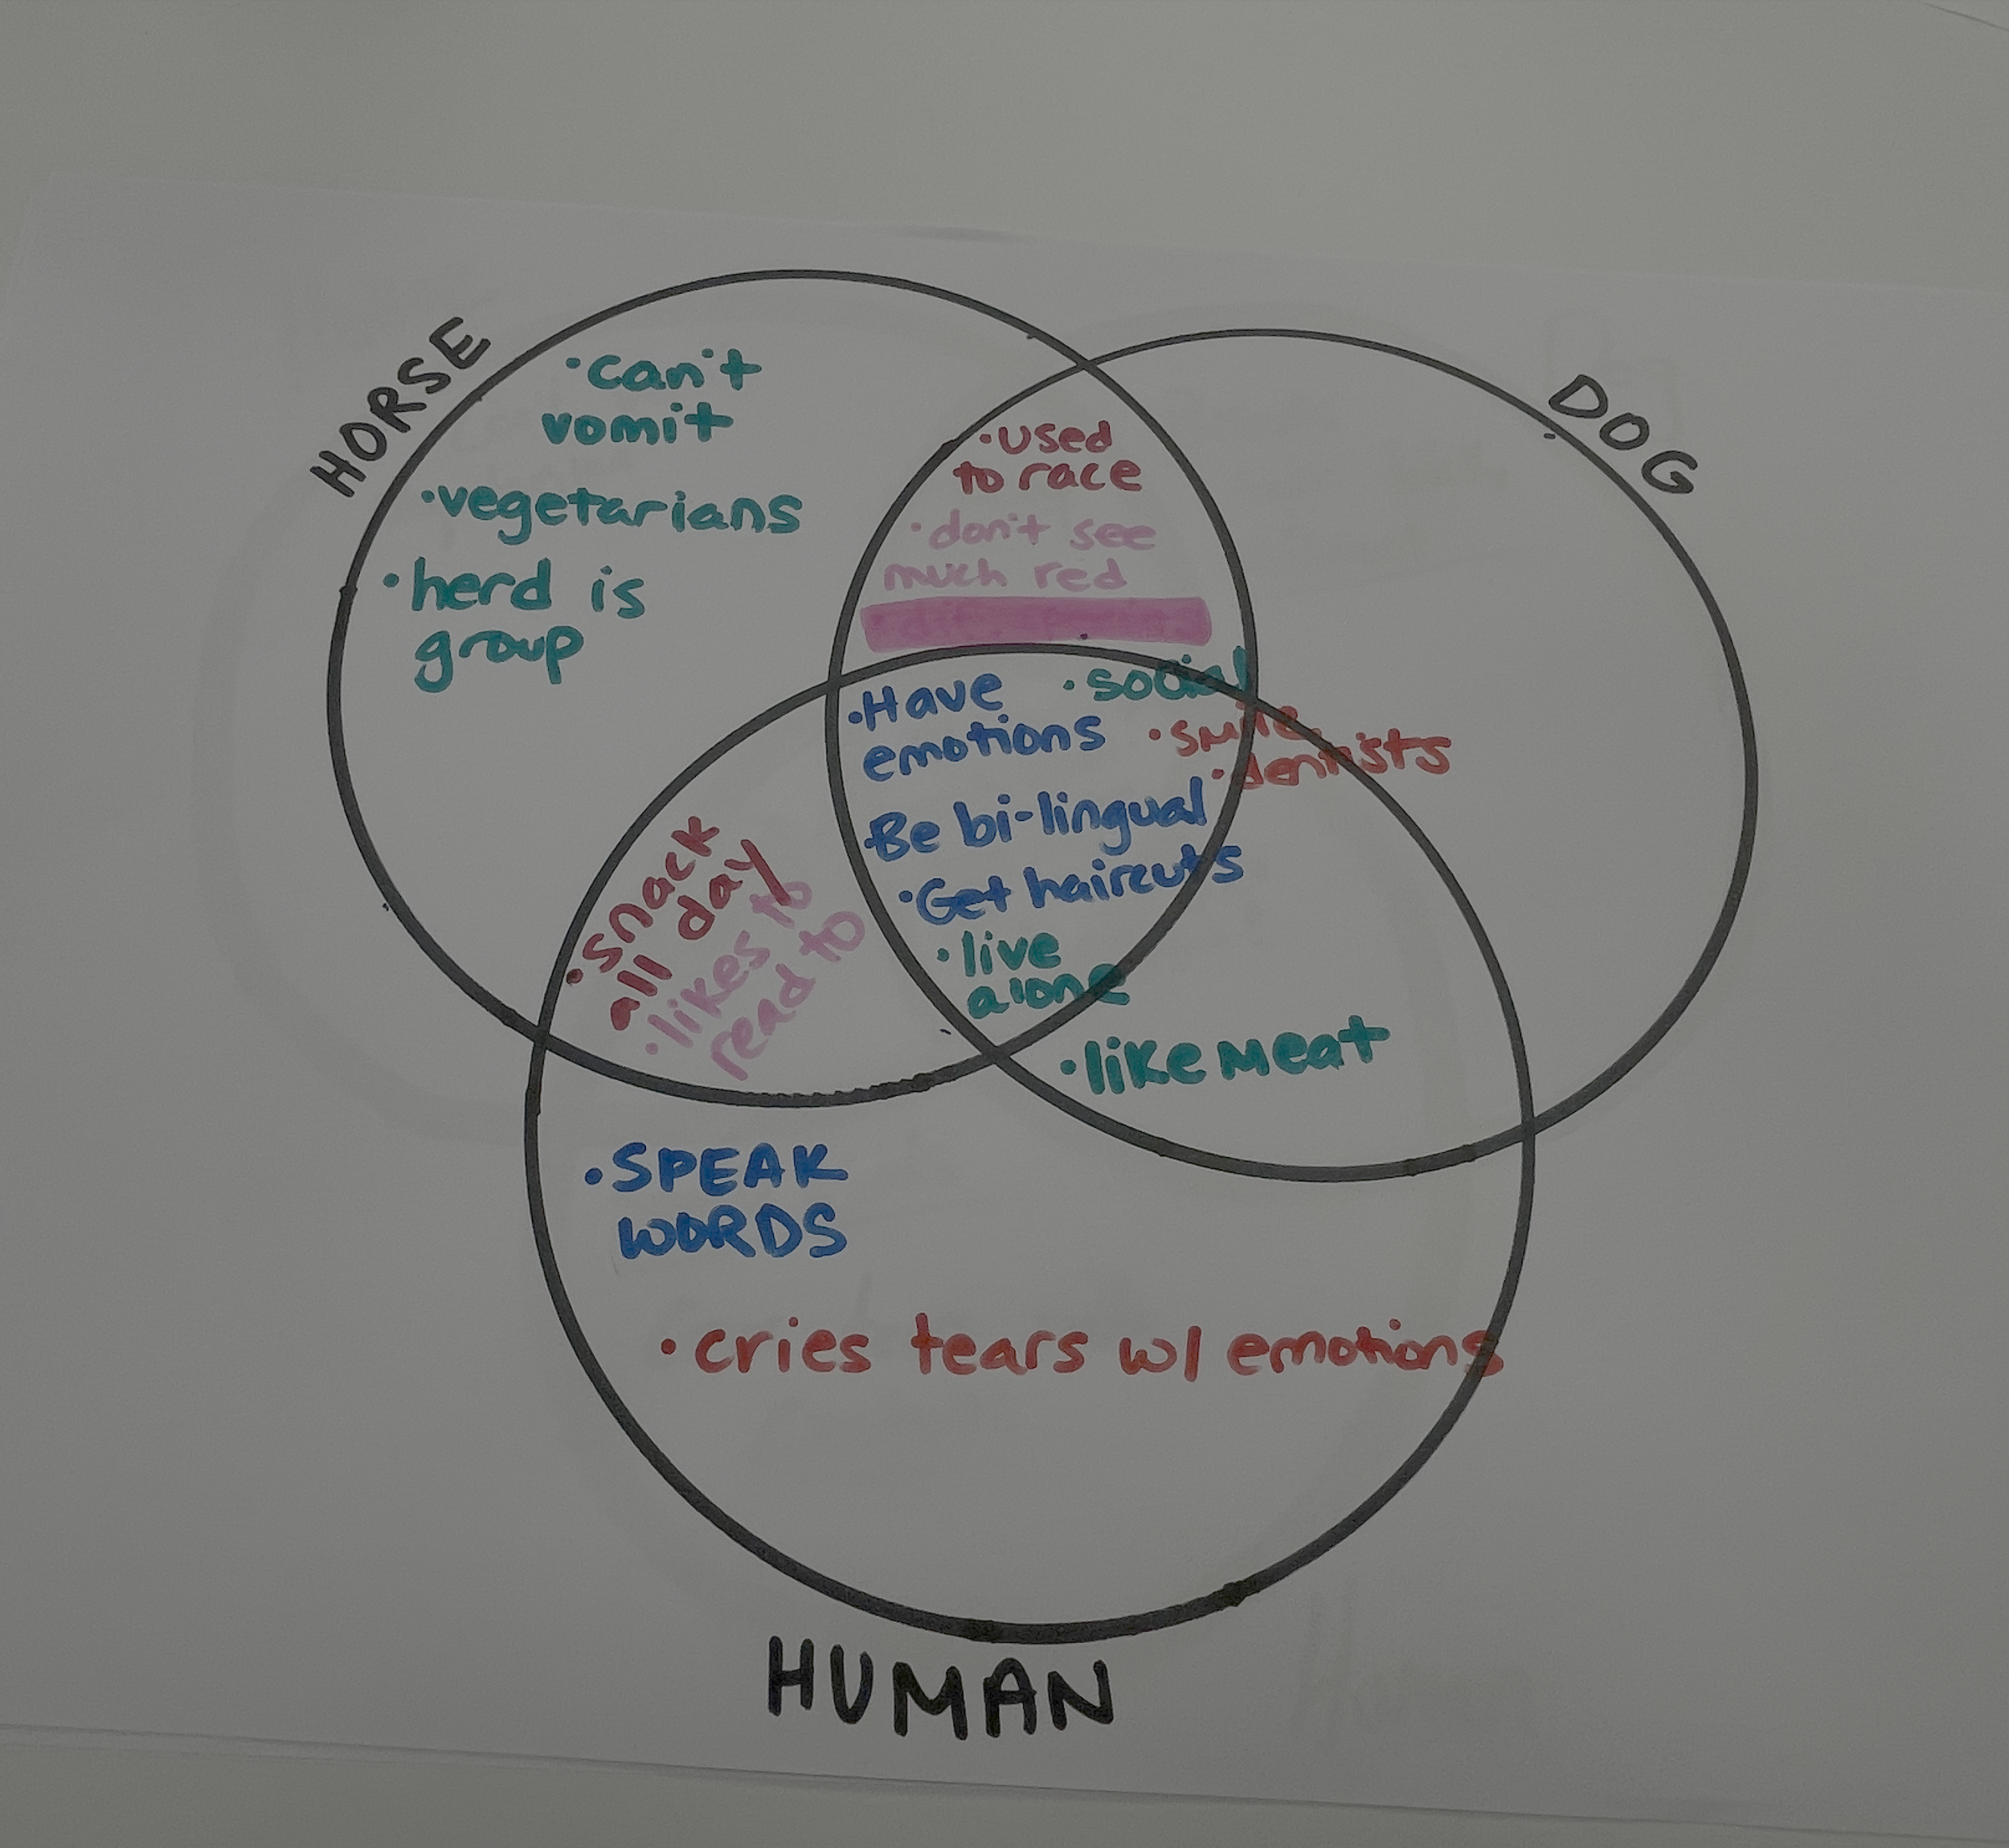 HORSE
DOG
·can't
vomit
·vegetarians
·herd is
group
·used
to race
·don't see
much red
·Have
emotions
·social
·smile
·dentists
·Be bi-lingual
·Get haircuts
·live
alone
·snack
all day
·likes to
read to
·like meat
·SPEAK
WORDS
·cries tears w/ emotions
HUMAN